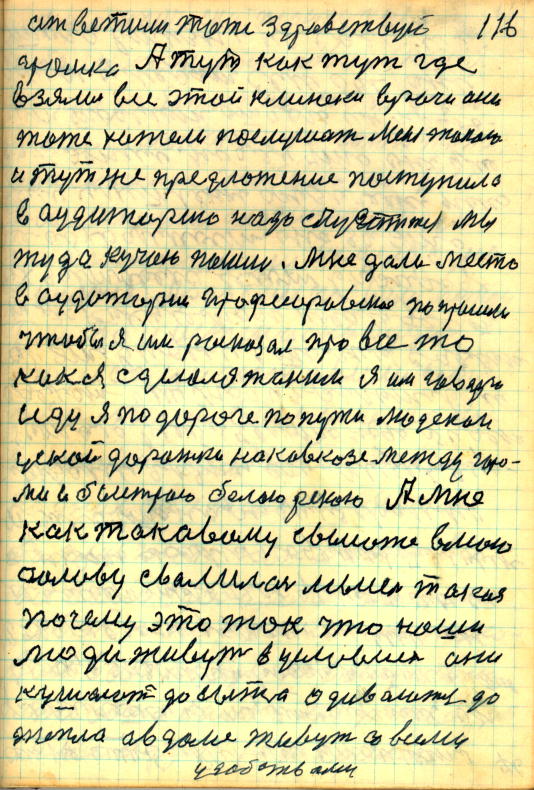 ответили тоже Здравствуй 116
А тут как тут где
взялис все этой клинеки врачи они
тоже хотели послушат меня такого
и тут же предложение поступило
в аудиторию надо мы
туда кучаю пошли. Мне дали место
в аудотории профессоравское попросили
чтобы я им расказал про все то
как я сделался таким я им говорю
иду я по дороге по пути
уской дорожки на кавкозе между гора-
ми и быстраю белою рекою А мне
как такавому свыше в маю
голову свалилася мысля такая
почему это так что наши
люди живут в условиях они
кушают до сытна одеваются до
тепла а в доме живут со всеми
удобствами